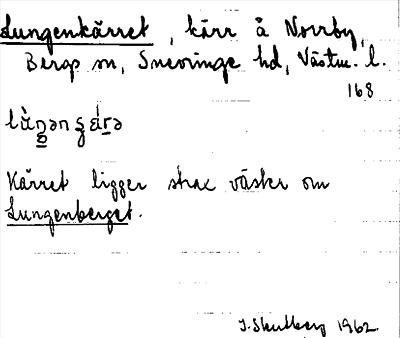 Lungenkärret, kärr å Norrby,
Bergs sn, Snevringe hd, Västm. l.
168
Kärret ligger strax väster om
Lungenberget.
J. Skulberg 1962